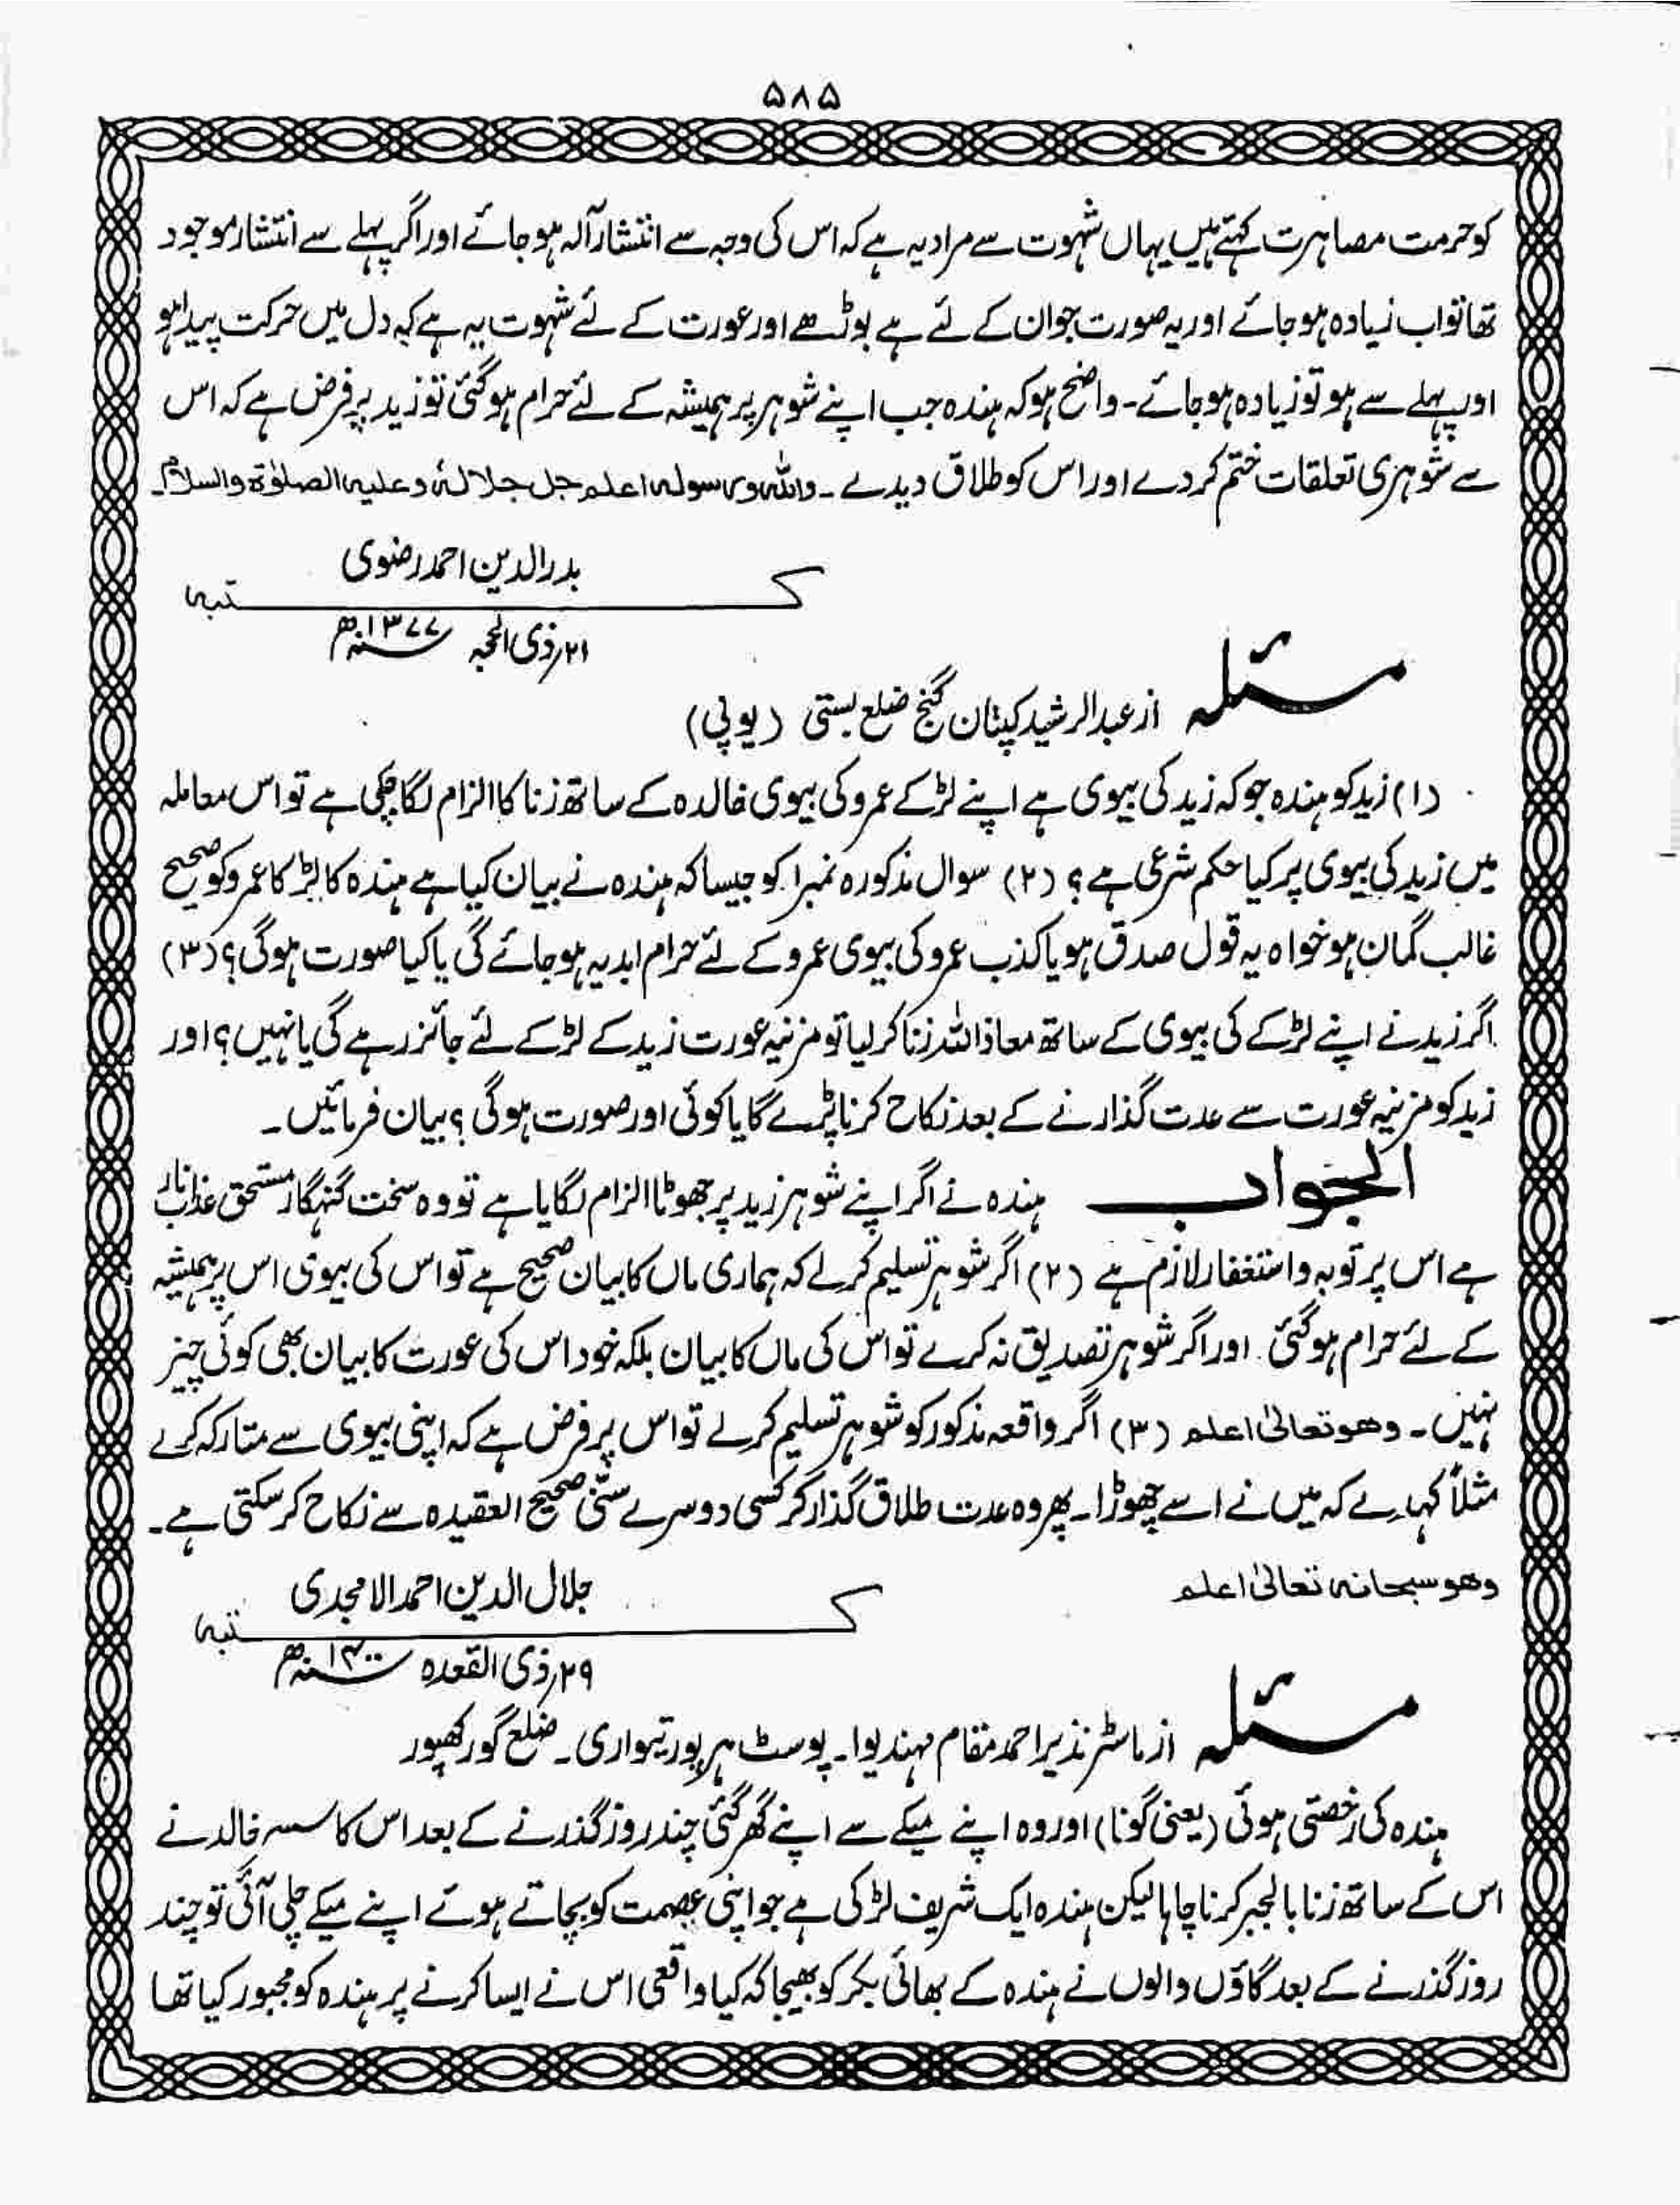 ۵۸۵
کو حرمت مصاہرت کہتے ہیں یہاں شہوت سے مراد یہ ہے کہ اس کی وجہ سے انتشار آلہ ہو جائے اور اگر پہلے سے انتشار موجود
تھا تو اب زیادہ ہو جائے اور یہ صورت جوان کے لئے ہے بوڑھے اور عورت کے لئے شہوت یہ ہے کہ دل میں حرکت پیدا ہو
اور پہلے سے ہو تو زیادہ ہو جائے۔ واضح ہو کہ ہندہ جب اپنے شوہر پر ہمیشہ کے لئے حرام ہوگئی تو زید پر فرض ہے کہ اس
سے شوہری تعلقات ختم کردے اور اس کو طلاق دیدے ۔ واللہ ورسولہ اعلم جل جلالہٗ وعلیہ الصلوٰۃ والسلام۔
بدرالدین احمد رضوی
کتبہ
۲۱؍ ذی الحجہ ۱۳۷۷ھ
مسئلہ
از عبدالرشید کپتان گنج ضلع بستی (یوپی)
(۱) زید کو ہندہ جو کہ زید کی بیوی ہے اپنے لڑکے عمرو کی بیوی خالدہ کے ساتھ زنا کا الزام لگا چکی ہے تو اس معاملہ
میں زید کی بیوی پر کیا حکم شرعی ہے؟ (۲) سوال مذکورہ نمبر۱ کو جیسا کہ ہندہ نے بیان کیا ہے ہندہ کا لڑکا عمرو کو صحیح
غالب گمان ہو خواہ یہ قول صدق ہو یا کذب عمرو کی بیوی عمرو کے لئے حرام ابدیہ ہو جائے گی یا کیا صورت ہوگی؟ (۳)
اگر زید نے اپنے لڑکے کی بیوی کے ساتھ معاذاللہ زنا کرلیا تو مزنیہ عورت زید کے لڑکے کے لئے جائز رہے گی یا نہیں؟ اور
زید کو مزنیہ عورت سے عدت گذارنے کے بعد نکاح کرنا پڑے گا یا کوئی اور صورت ہوگی؟ بیان فرمائیں۔
الجواب
ہندہ نے اگر اپنے شوہر زید پر جھوٹا الزام لگایا ہے تو وہ سخت گنہگار مستحق عذاب نار
ہے اس پر توبہ و استغفار لازم ہے (۲) اگر شوہر تسلیم کرلے کہ ہماری ماں کا بیان صحیح ہے تو اس کی بیوی اس پر ہمیشہ
کے لئے حرام ہوگئی اور اگر شوہر تصدیق نہ کرے تو اس کی ماں کا بیان بلکہ خود اس کی عورت کا بیان بھی کوئی چیز
نہیں۔ وھو تعالیٰ اعلم (۳) اگر واقعہ مذکور کو شوہر تسلیم کرلے تو اس پر فرض ہے کہ اپنی بیوی سے متارکہ کرے
مثلاً کہہ دے کہ میں نے اسے چھوڑا۔ پھر وہ عدت طلاق گذار کر کسی دوسرے سنی صحیح العقیدہ سے نکاح کر سکتی ہے۔
وھو سبحانہ تعالیٰ اعلم
جلال الدین احمد الامجدی
کتبہ
۲۹؍ ذی القعدہ ۱۴۰۰ھ
مسئلہ
از ماسٹر نذیر احمد مقام مہندیوا۔ پوسٹ ہرپور تیواری۔ ضلع گورکھپور
ہندہ کی رخصتی ہوئی (یعنی گونا) اور وہ اپنے میکے سے اپنے گھر گئی چند روز گذرنے کے بعد اس کا سسر خالد نے
اس کے ساتھ زنا بالجبر کرنا چاہا لیکن ہندہ ایک شریف لڑکی ہے جو اپنی عصمت کو بچاتے ہوئے اپنے میکے چلی آئی تو چند
روز گذرنے کے بعد گاؤں والوں نے ہندہ کے بھائی بکر کو بھیجا کہ کیا واقعی اس نے ایسا کرنے پر ہندہ کو مجبور کیا تھا